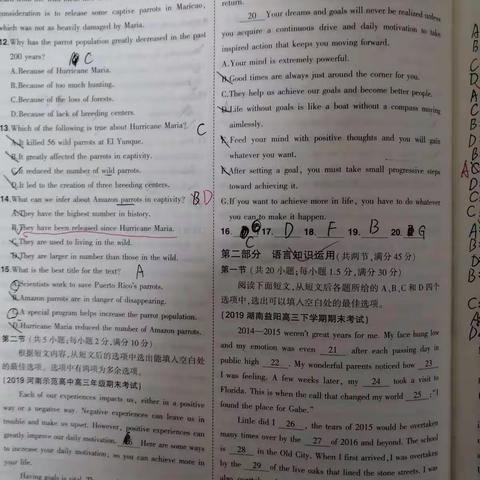 consideration is to release some captive parrots in Maricao,
which was not as heavily damaged by Maria.
12.Why has the parrot population greatly decreased in the past
200 years? C
A.Because of Hurricane Maria.
B.Because of too much hunting.
C.Because of the loss of forests.
D.Because of lack of breeding centers.
13.Which of the following is true about Hurricane Maria? C
A.It killed 56 wild parrots at El Yunque.
B.It greatly affected the parrots in captivity.
C.It reduced the number of wild parrots.
D.It led to the creation of three breeding centers.
14.What can we infer about Amazon parrots in captivity? B D
A.They have the highest number in history.
B.They have been released since Hurricane Maria.
C.They are used to living in the wild.
D.They are larger in number than those in the wild.
15.What is the best title for the text? A
A.Scientists work to save Puerto Rico's parrots.
B.Amazon parrots are in danger of disappearing.
C.A special program helps increase the parrot population.
D.Hurricane Maria reduced the number of Amazon parrots.
第二节(共5小题;每小题2分,满分10分)
根据短文内容,从短文后的选项中选出能填入空白处
的最佳选项。选项中有两项为多余选项。
[2019 河南示范高中高三年级期末考试]
Each of our experiences impacts us, either in a positive
way or a negative way. Negative experiences can leave us in
trouble and make us upset. However, positive experiences can
greatly improve our daily motivation. Here are some ways
to increase your daily motivation, so you can achieve more in
your life.
return.
20 Your dreams and goals will never be realized unless
you acquire a continuous drive and daily motivation to take
inspired action that keeps you moving forward.
A.Your mind is extremely powerful.
B.Good times are always just around the corner for you.
C.They help us achieve our goals and become better people.
D.Life without goals is like a boat without a compass moving
aimlessly.
E.Feed your mind with positive thoughts and you will gain
whatever you want.
F.After setting a goal, you must take small progressive steps
toward achieving it.
G.If you want to achieve more in life, you have to do whatever
you can to make it happen.
16. C 17. D 18. F 19. B 20. G
第二部分 语言知识运用(共两节,满分45分)
第一节(共20小题;每小题1.5分,满分30分)
阅读下面短文,从短文后各题所给的A、B、C和D四个
选项中,选出可以填入空白处的最佳选项。
[2019 湖南益阳高三下学期期末考试]
2014—2015 weren't great years for me. My face hung low
and my emotion was even 21 after each passing day in
public high 22 . My wonderful parents noticed how 23
I was feeling. A few weeks later, my 24 took a visit to
Florida. This is when the call that changed my world 25 :"I
found the place for Gabe."
Little did I 26 , the tears of 2015 would be overtaken
many times over by the 27 of 2016 and beyond. The school
is 28 in the Old City. When I first arrived, I was overtaken
by the 29 of the live oaks that lined the stone streets. I was